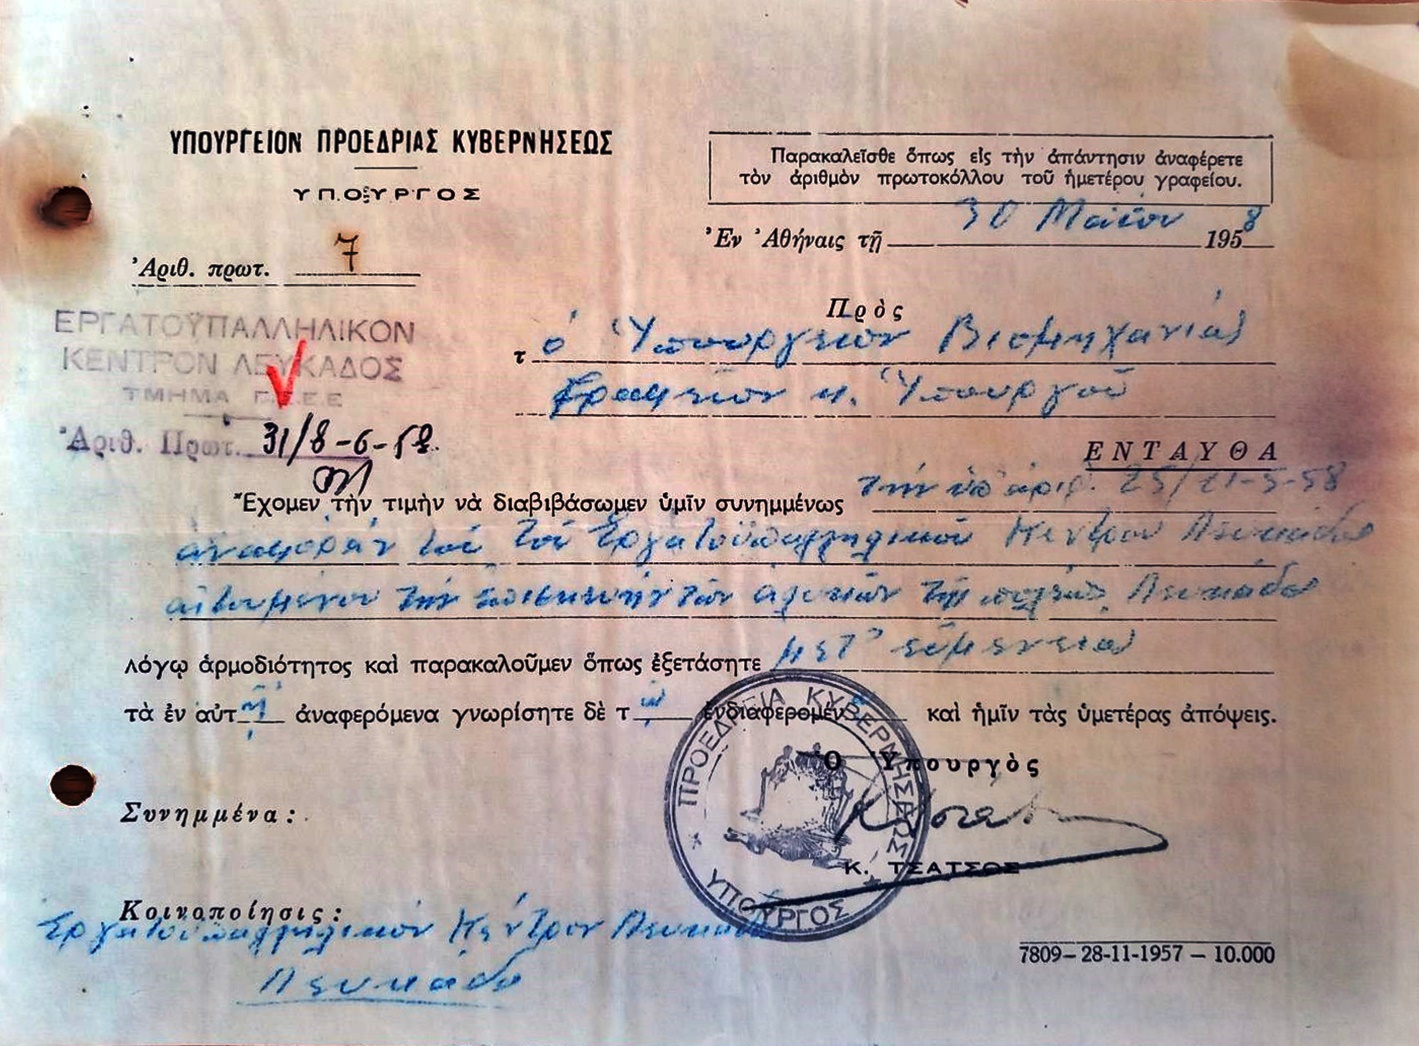 ΥΠΟΥΡΓΕΙΟΝ ΠΡΟΕΔΡΙΑΣ ΚΥΒΕΡΝΗΣΕΩΣ
ΥΠΟΥΡΓΟΣ
Παρακαλεῖσθε ὅπως εἰς τὴν ἀπάντησιν ἀναφέρετε
τὸν ἀριθμὸν πρωτοκόλλου τοῦ ἡμετέρου γραφείου.
Ἀριθ. πρωτ. 7
Ἐν Ἀθήναις τῇ 30 Μαΐου 1958
ΕΡΓΑΤΟΫΠΑΛΛΗΛΙΚΟΝ
ΚΕΝΤΡΟΝ ΛΕΥΚΑΔΟΣ
ΤΜΗΜΑ Γ.Σ.Ε.Ε
Ἀριθ. Πρωτ. 31/8-6-58
Πρὸς
τ ὸ Ὑπουργεῖον Βιομηχανίας
Γραφεῖον κ. Ὑπουργοῦ
ΕΝΤΑΥΘΑ
Ἔχομεν τὴν τιμὴν νὰ διαβιβάσωμεν ὑμῖν συνημμένως τὴν ὑπ' ἀριθ. 25/21-5-58
ἀναφορὰν τοῦ Ἐργατοϋπαλληλικοῦ Κέντρου Λευκάδος
αἰτουμένου τὴν τῶν ἁλυκῶν τῆς πόλεως Λευκάδος
λόγῳ ἁρμοδιότητος καὶ παρακαλοῦμεν ὅπως ἐξετάσητε μετ' εὐμενείας
τὰ ἐν αὐτῇ ἀναφερόμενα γνωρίσητε δὲ τῷ ἐνδιαφερομέν καὶ ἡμῖν τὰς ὑμετέρας ἀπόψεις.
Ὁ Ὑπουργὸς
ΠΡΟΕΔΡΕΙΑ ΚΥΒΕΡΝΗΣΕΩΣ
ΥΠΟΥΡΓΟΣ
Κ. ΤΣΑΤΣΟΣ
Συνημμένα:
Κοινοποίησις:
Ἐργατοϋπαλληλικὸν Κέντρον Λευκάδος
Λευκάδα
7809–28-11-1957 – 10.000